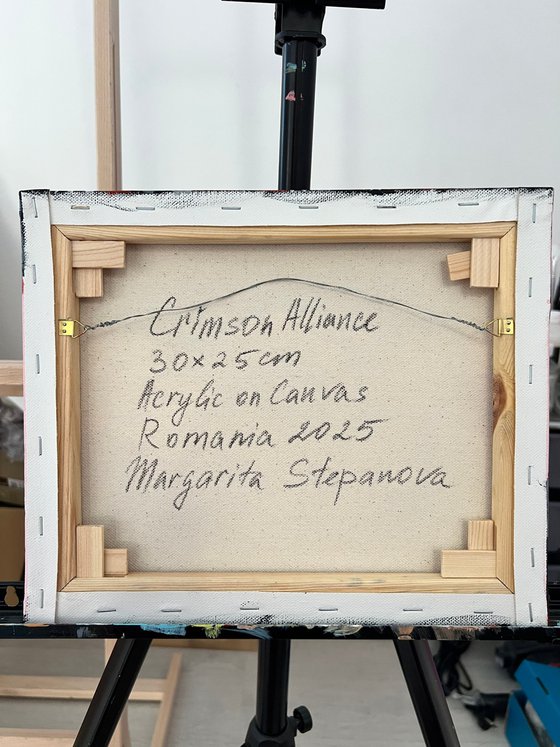 Crimson Alliance
30x25cm
Acrylic on Canvas
Romania 2025
Margarita Stepanova